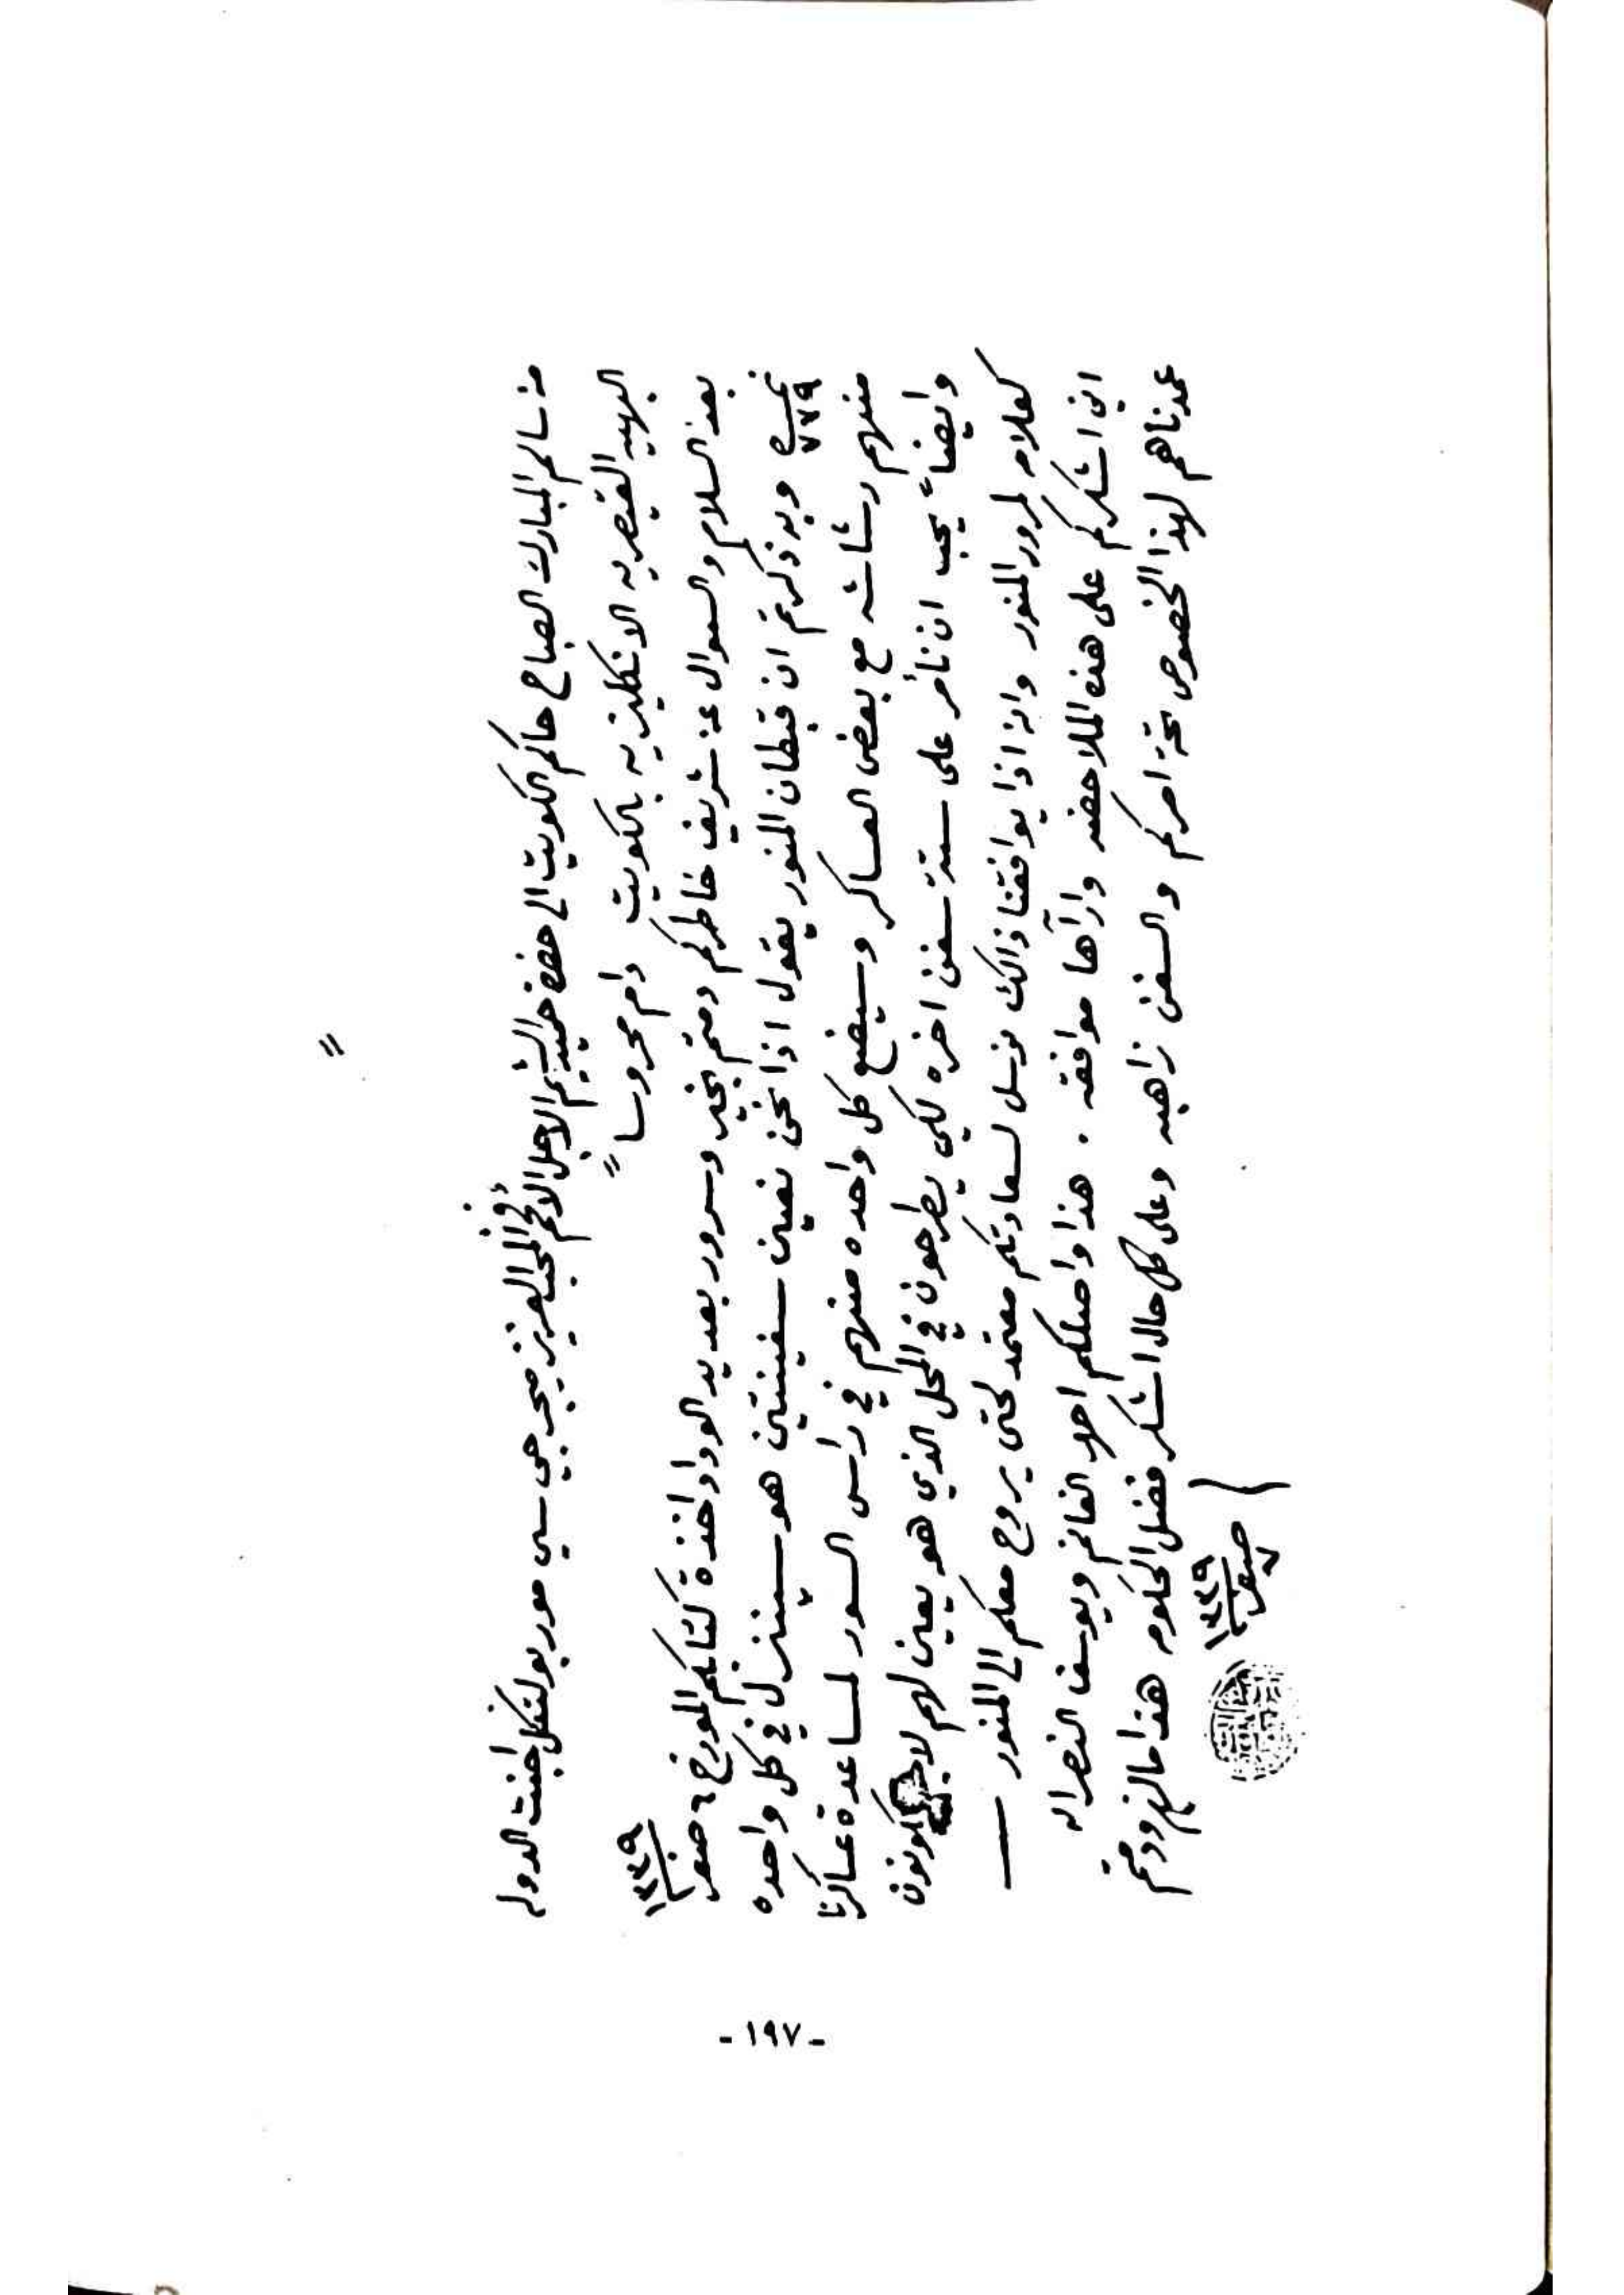 من سالم المبارك الصباح حاكم الكويت الى حضرة حميد الشيم الاجل الافخم المحب العزيز ميجر جي سي مور بولتكل اجنت الدوله
البهيه القيصريه الانكليزيه بالكويت دام محروساً
بعد السلام والسوال عن شريف خاطركم دمتم بخير وسرور بعديد الوداد اخذة كتابكم المورخ ٦ صفر ١٣٣٩
نمرة ٧٧٩ وبه ذكرتم ان قبطان المنور يقول اذا نحن نعين سفينتين هو سينزل في كل واحده
منهم رشاشه مع بعض العساكر وسيضع كل واحده منهم في راس السور لمساعدة عساكرنا
وايضاً يجب ان نأمر على ستة سفن اخره لكي يطرحون في المحل الذي هو يعين لهم لاجل يكونون
كعلامه لمرور المنور وانه اذا يوافقنا ذالك نرسل لسعادتكم معتمد لحتى يروح معكم الى المنور
اني اشكركم على هذه الملاحضه وارآها موافقه . هذا واصلكم احمد الغانم ويوسف النصرالله
عمدناهم لهذا الخصوص تحت امركم والسفن زاهبه وعلى كل حال اشكر فضل الحكومه هذا مالزم ودمتم
صفر ١٣٣٩
-١٩٧-